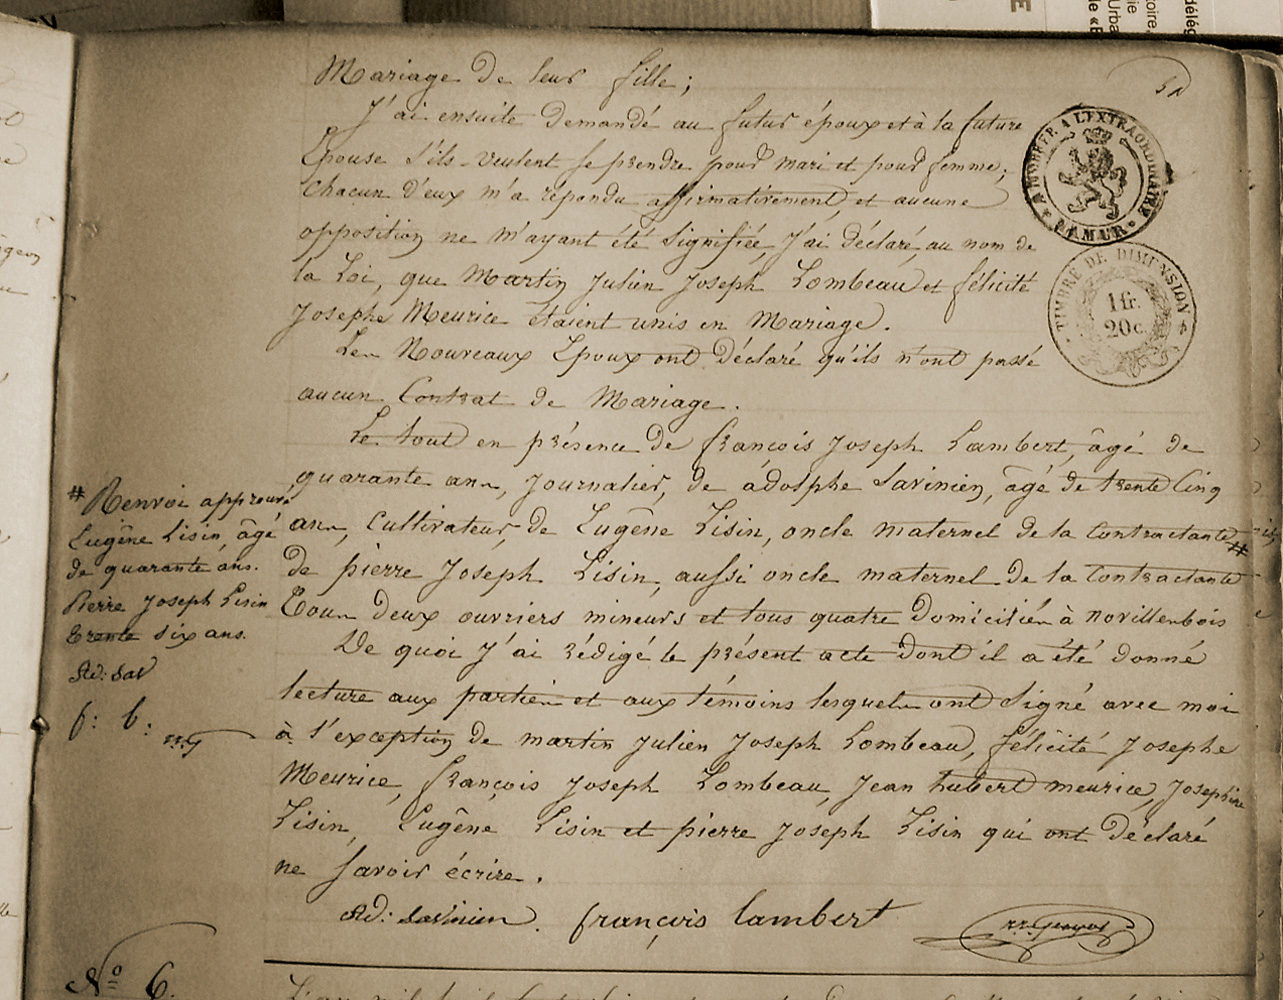 Mariage de leur fille;
J'ai ensuite demandé au futur époux et à la future
Epouse s'ils veulent se prendre pour mari et pour femme;
Chacun d'eux m'a répondu affirmativement, et aucune
opposition ne m'ayant été signifiée, J'ai déclaré, au nom de
la Loi, que Martin Julien Joseph Lombeau et félicité
Josephe Meurice étaient unis en Mariage.
Les Nouveaux Epoux ont déclaré qu'ils n'ont passé
aucun Contrat de Mariage.
Le tout en présence de françois Joseph Lambert, âgé de
quarante ans, Journalier, de adolphe Savinien, âgé de trente Cinq
ans, Cultivateur, de Eugêne Lisin, oncle maternel de la Contractante #
de pierre Joseph Lisin, aussi oncle maternel de la Contractante
Tous deux ouvriers mineurs et tous quatre Domiciliés à novillenbois
De quoi J'ai rédigé le présent acte dont il a été donné
lecture aux parties et aux témoins lesquels ont signé avec moi
à l'exception de martin Julien Joseph Lombeau, félicité Josephe
Meurice, françois Joseph Lombeau, Jean hubert meurice, Josephine
Lisin, Eugêne Lisin et pierre Joseph Lisin qui ont Déclaré
ne savoir écrire.
Ad: Savinien. françois lambert
# Renvoi approuvé
Eugêne Lisin, âgé
de quarante ans.
Pierre Joseph Lisin
trente six ans.
Ad: Sav
f: l:
No 6.
A TIMBRER A L'EXTRAORDINAIRE
NAMUR
TIMBRE DE DIMENSION
1 fr.
20 c.